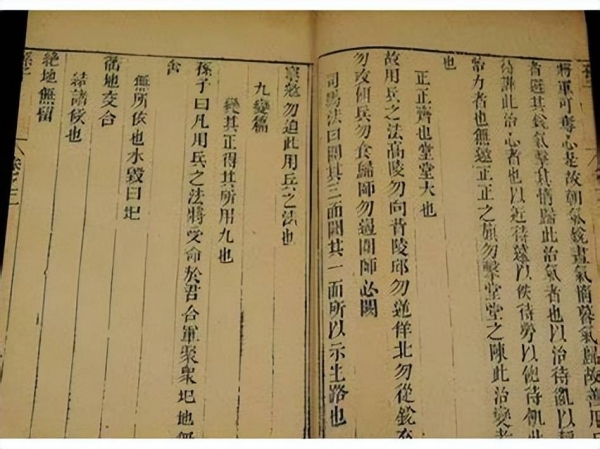 將軍可奪心是故朝氣銳晝氣惰暮氣歸故善用
者避其銳氣擊其惰歸此治氣者也以治待亂以
待譁此治心者也以近待遠以佚待勞以飽待飢
治力者也無邀正正之旗勿擊堂堂之陳此治變者
也
正正齊也堂堂大也
故用兵之法高陵勿向背陵邱勿逆佯北勿從銳
勿攻餌兵勿食歸師勿遏圍師必闕
司馬法曰圍其三面闕其一面所以示生路也
窮寇勿迫此用兵之法也
九變篇
變其正得其所用九也
孫子曰凡用兵之法將受命於君合軍聚衆圮地無
舍
無所依也水毀曰圮
衢地交合
結諸侯也
絶地無留
孫子 卷之三